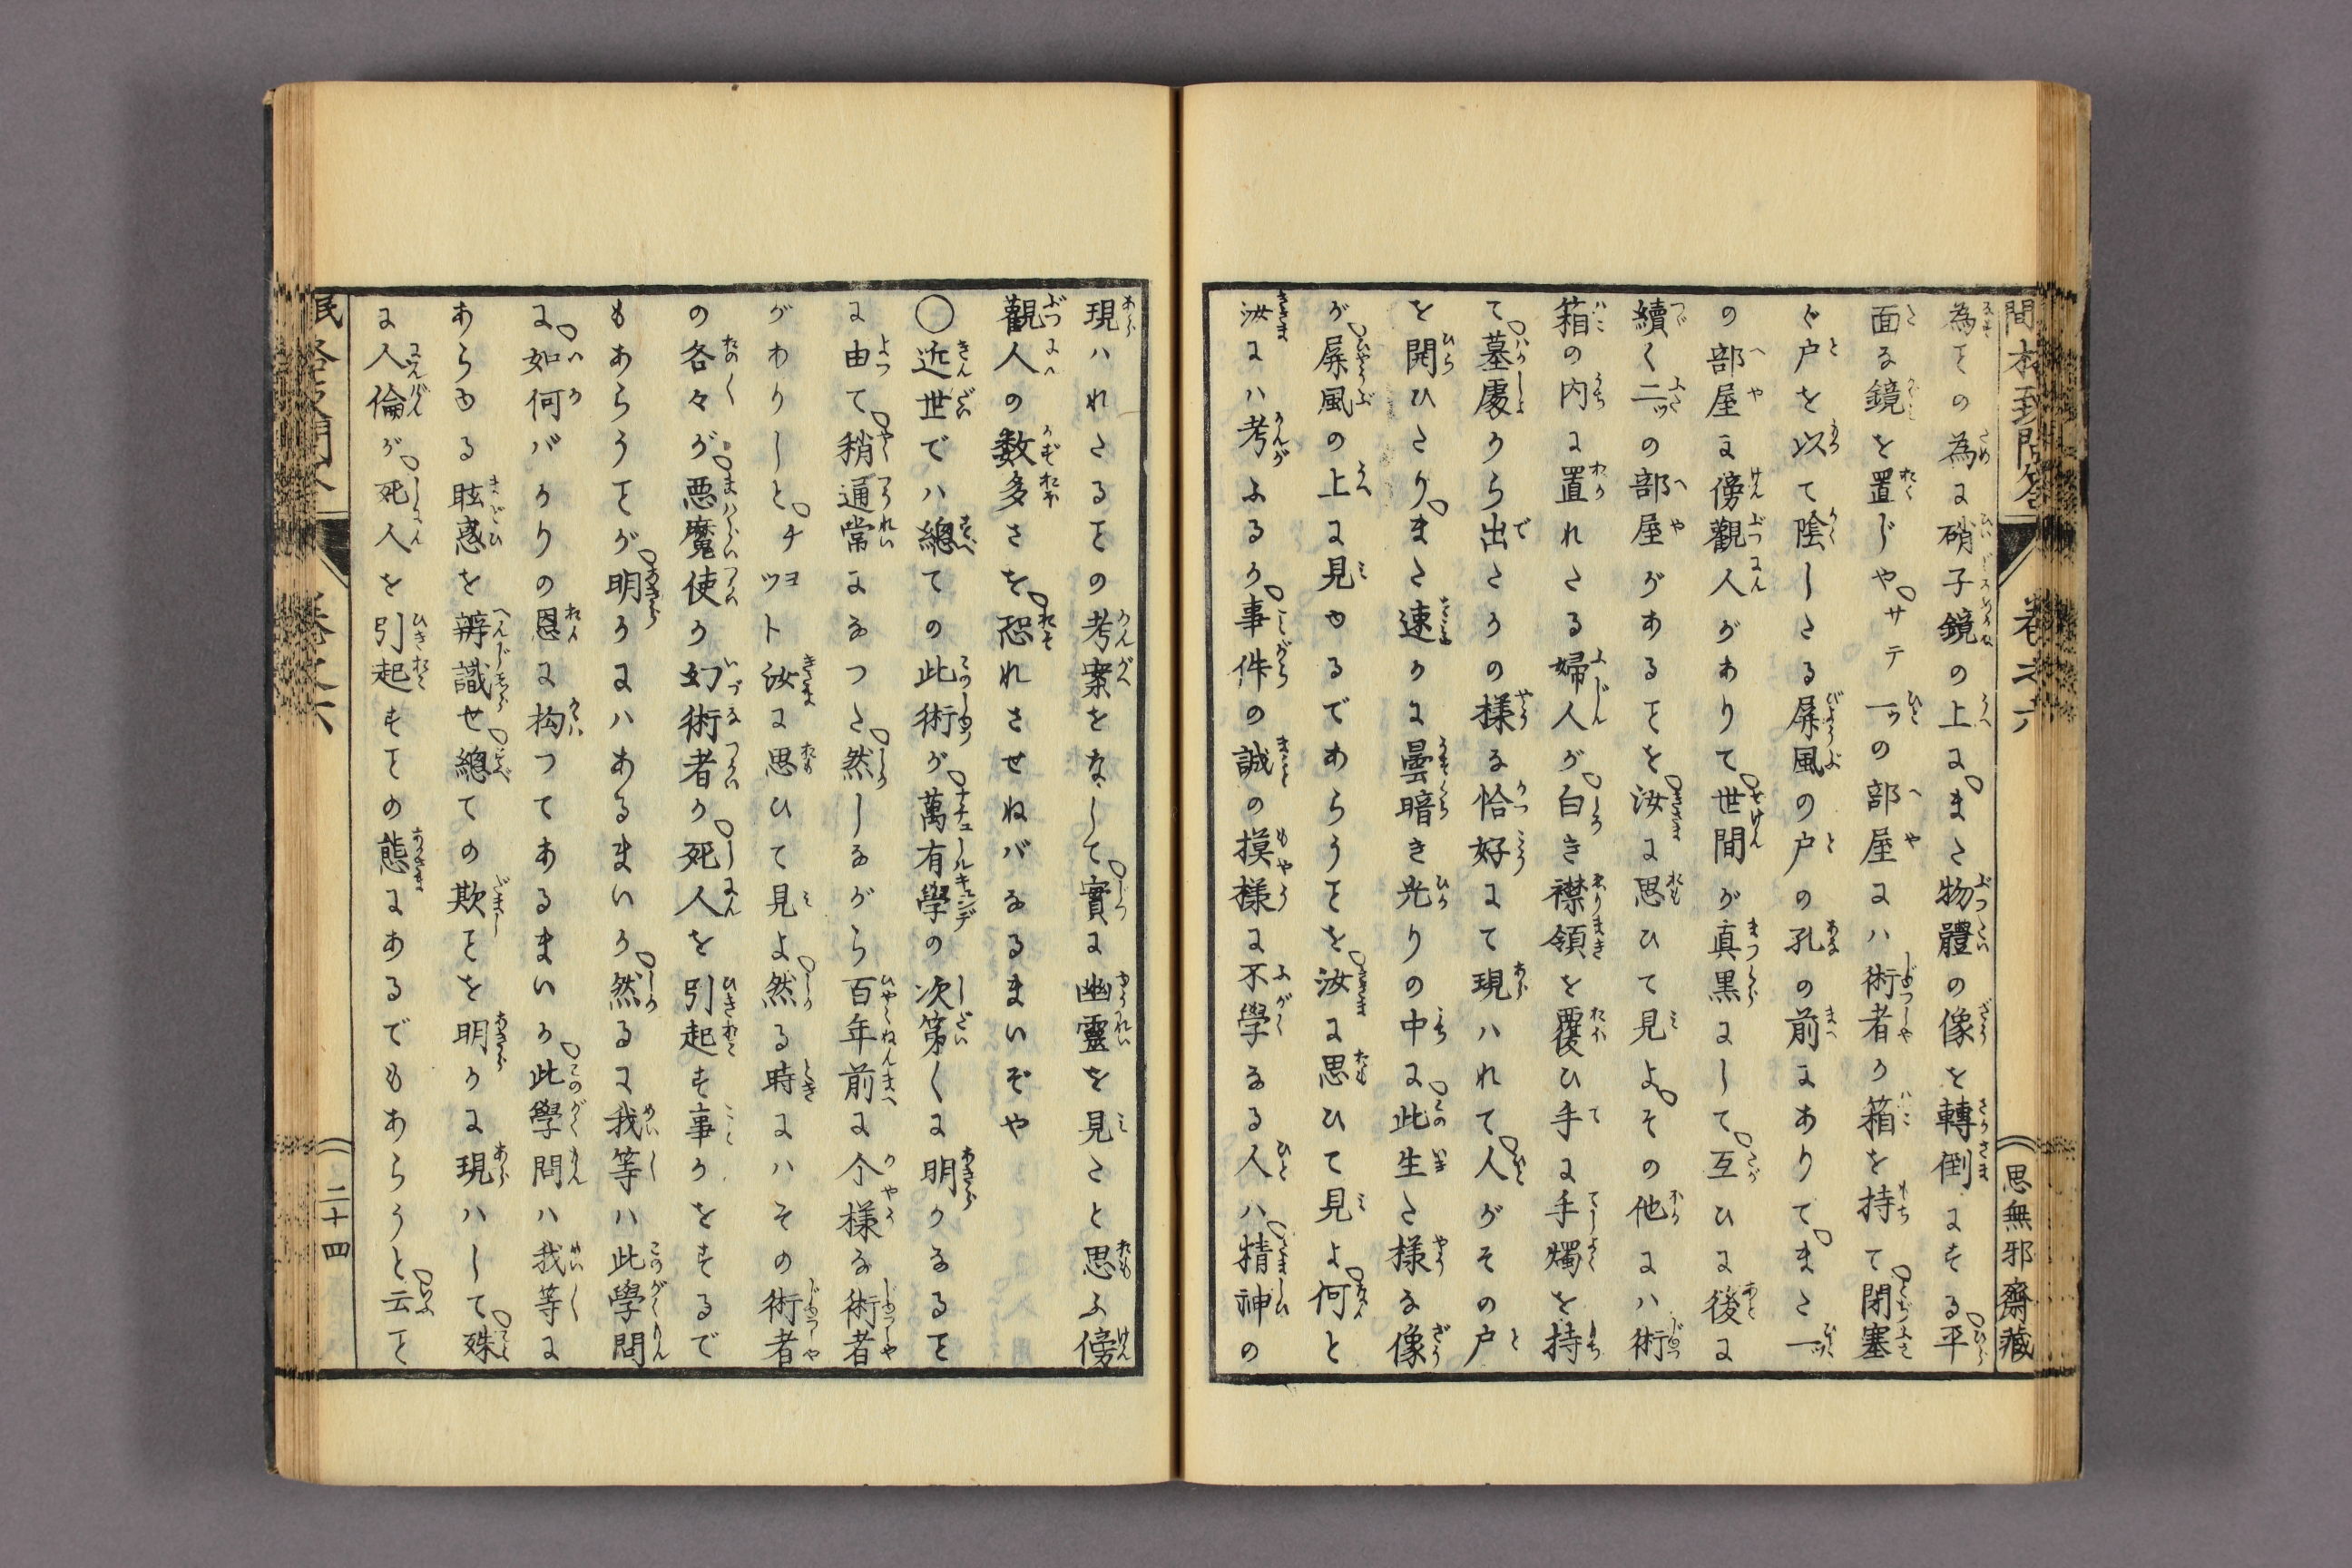 為ヿの為に硝子鏡の上にまた物體の像を轉倒にする平
面な鏡を置じやサテ一ツの部屋にハ術者か箱を持て閉塞
ぐ戸を以て陰したる屏風の戸の孔の前にありてまた一ツ
の部屋に傍觀人がありて世間が真黒にして互ひに後に
續く二ツの部屋があるヿを汝に思ひて見よその他にハ術
箱の内に置れたる婦人が白き襟領を覆ひ手に手燭を持
て墓處から出たかの様な恰好にて現ハれて人がその戸
を開ひたりまた速かに曇暗き光りの中に此生た様な像
が屏風の上に見ゆるであらうヿを汝に思ひて見よ何と
汝にハ考ふるか事件の誠の摸様に不學なる人ハ精神の
思無邪齋藏
現ハれたるヿの考案をなして實に幽靈を見たと思ふ傍
觀人の数多さを恐れさせねバなるまいぞや
○近世でハ總ての此術が萬有學の次第〱に明かなるヿ
に由て稍通常になつた然しながら百年前に个様な術者
がわりしとチヨツト汝に思ひて見よ然る時にハその術者
の各々が悪魔使か幻術者か死人を引起す事かをするで
もあらうヿが明かにハあるまいか然るに我等ハ此學問
に如何バかりの恩に拘つてあるまいか此學問ハ我等に
あらゆる眩惑を辨識せ總ての欺ヿを明かに現ハして殊
に人倫が死人を引起すヿの態にあるでもあらうと云ヿ
二十四